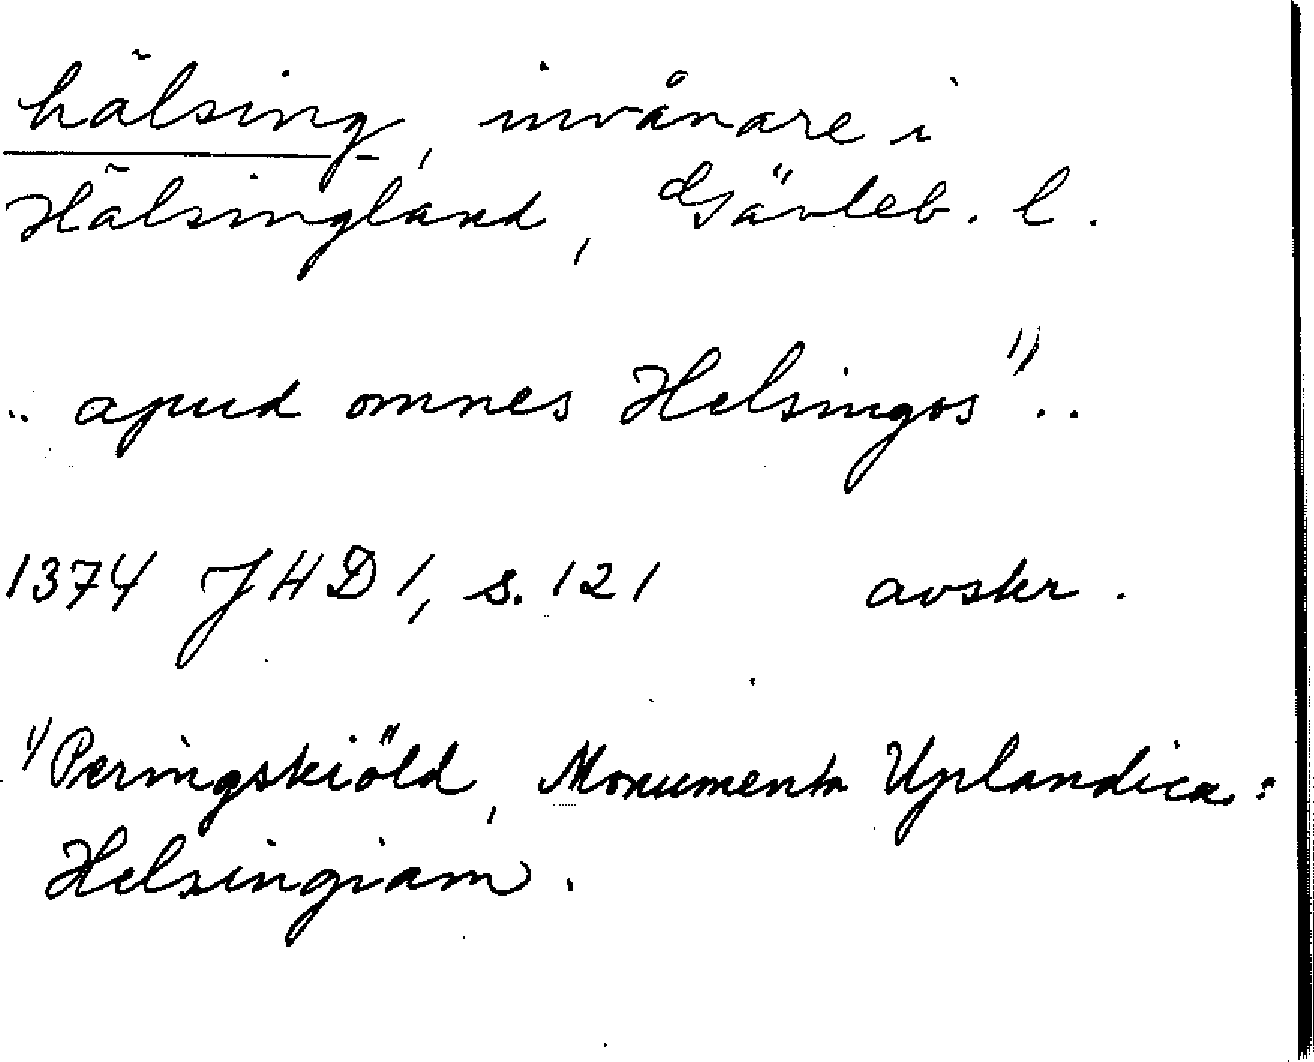 hälsing, invånare i
Hälsingland, Gävleb. l.
.. apud omnes Helsingos 1) ..
1374 JHD 1, s. 121 avskr.
1) Peringskiöld, Monumenta Uplandica:
Helsingiam.